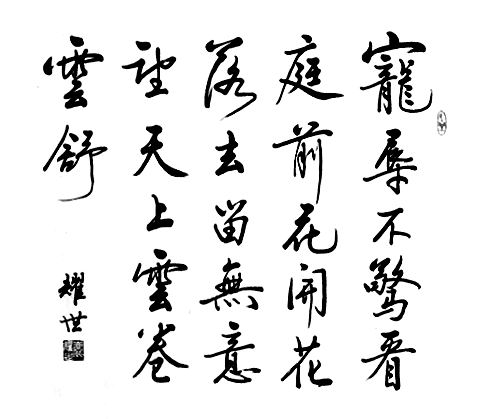 寵辱不驚看
庭前花開花
落去留無意
望天上雲卷
雲舒
耀世